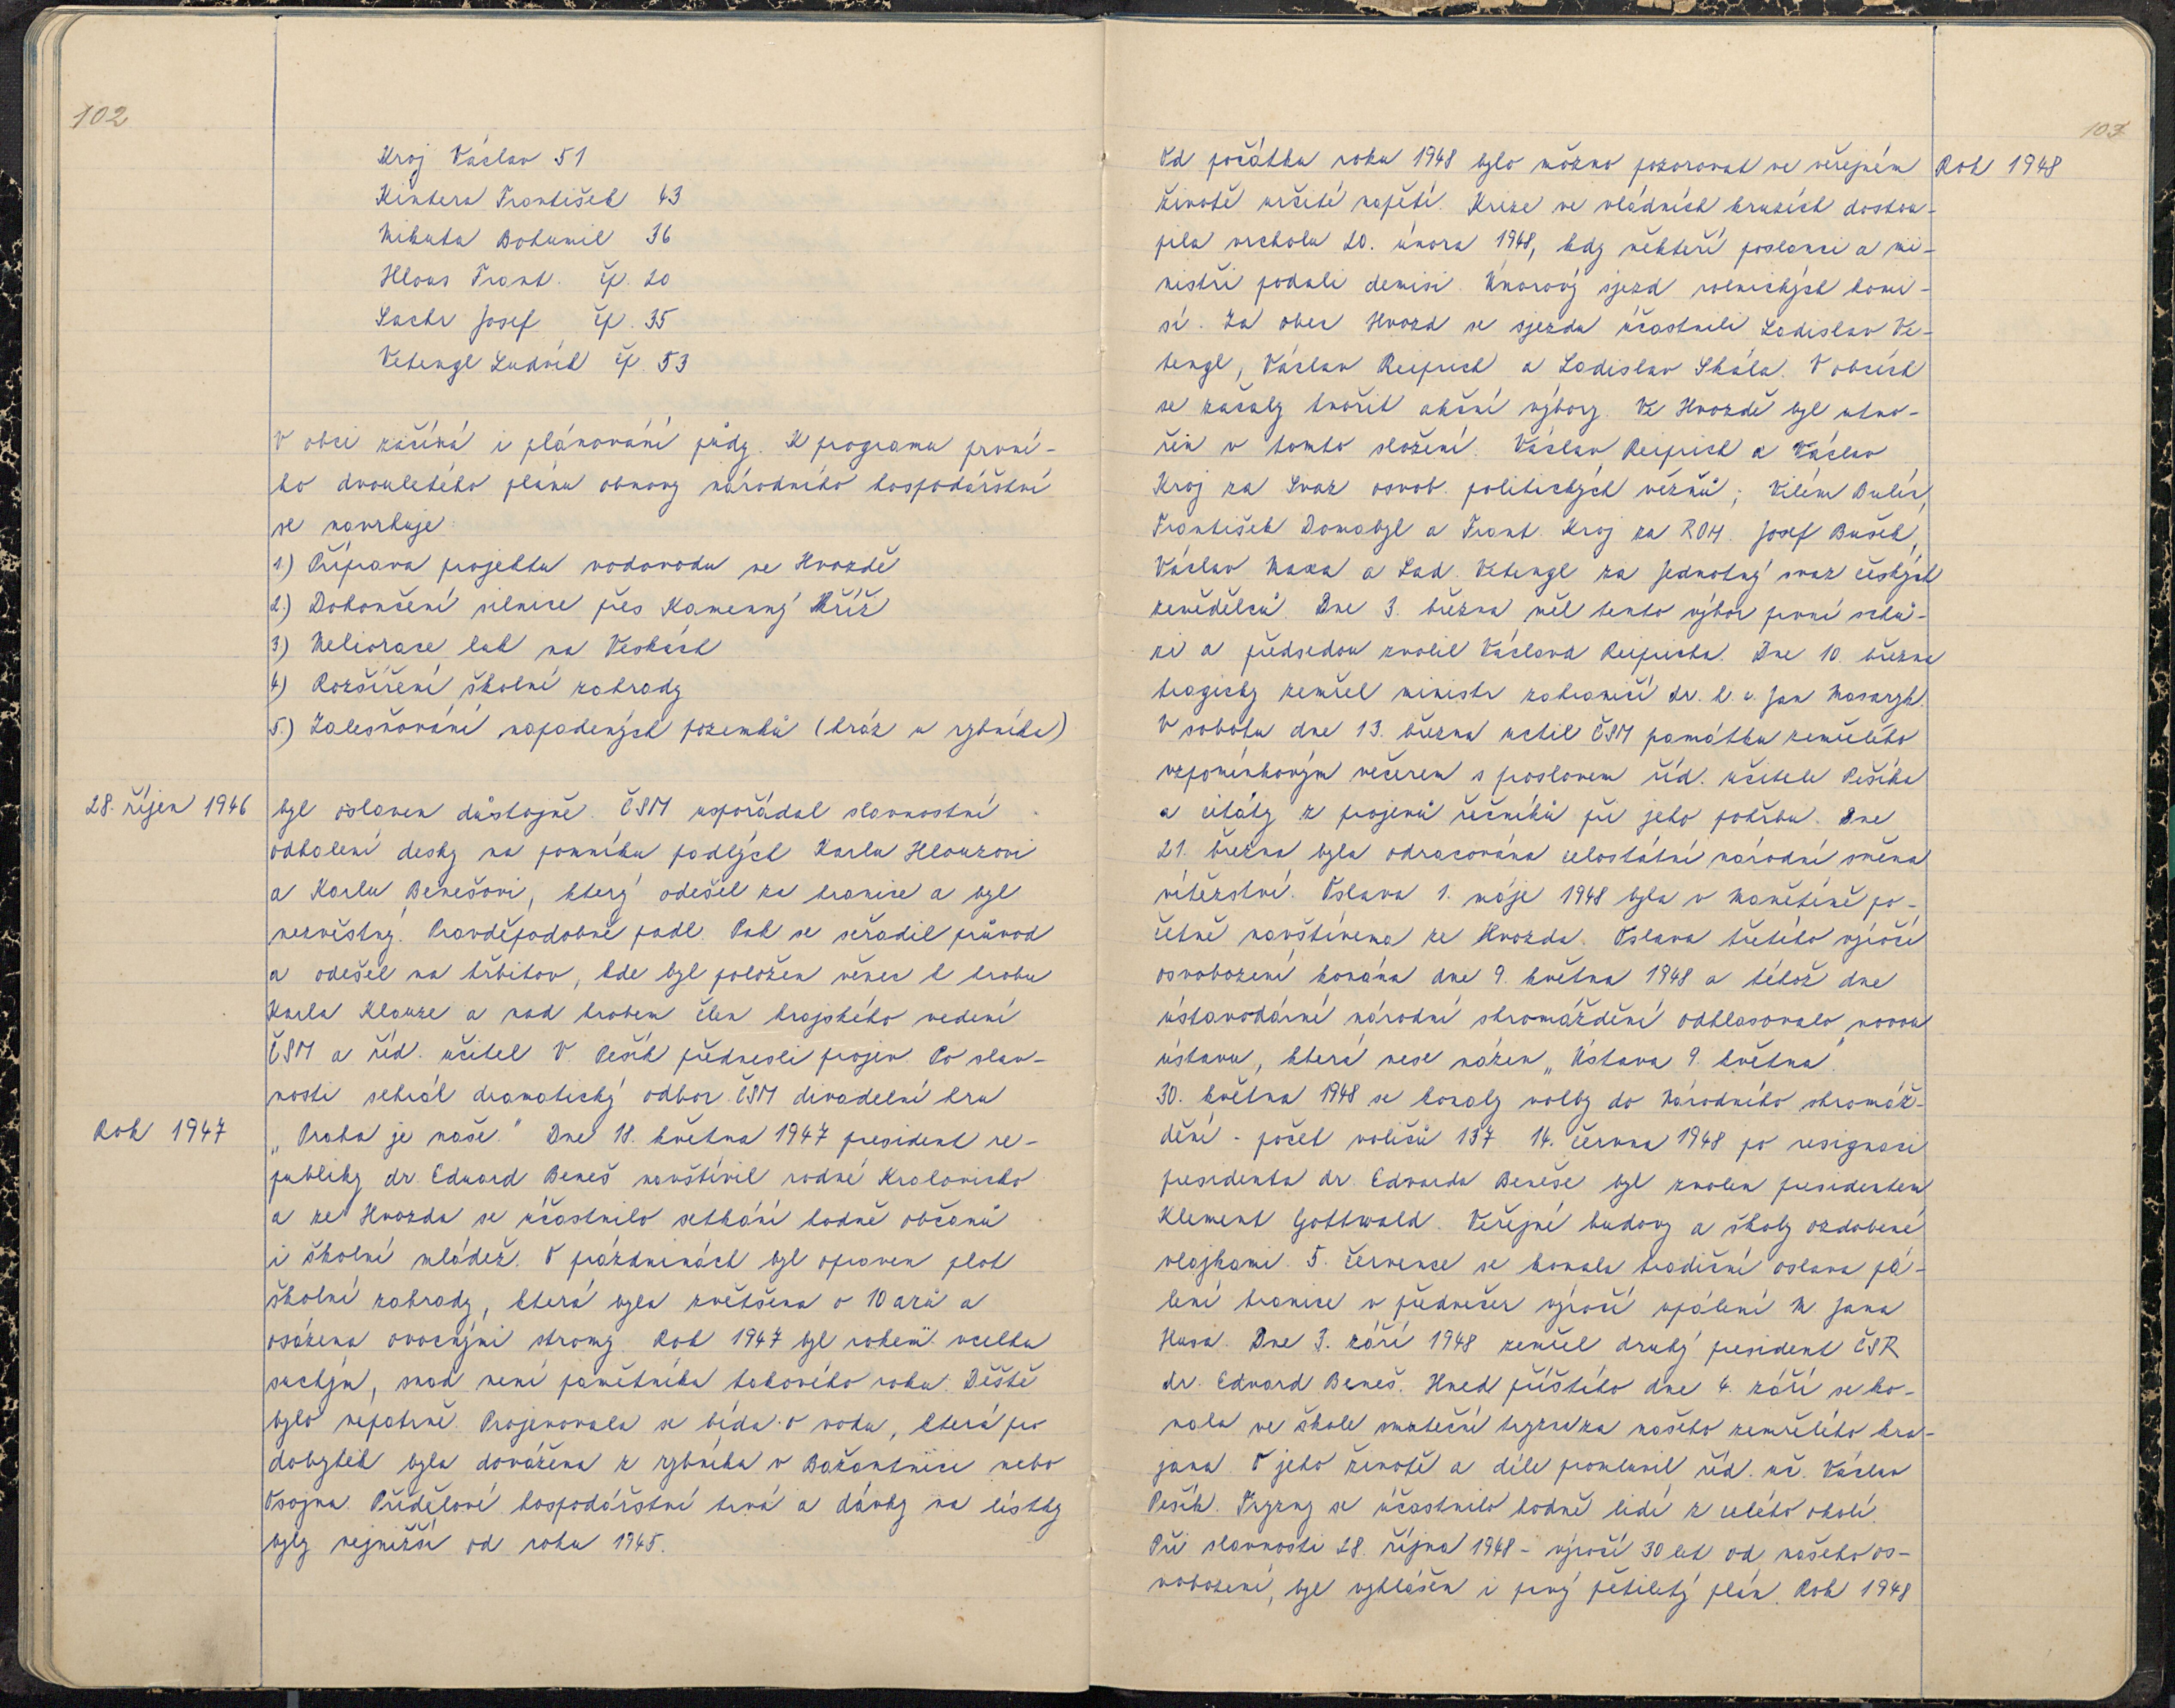 102
Kroj Václav 51
Kintera František 43
Mikuta Bohumil 36
Hlous Frant. čp. 20
Sachr Josef čp. 35
Vetengl Ludvík čp. 53
V obci začíná i plánování půdy. K programu první-
ho dvouletého plánu obnovy národního hospodářství
se navrhuje:
1.) Příprava projektu vodovodu ve Hvozdě
2.) Dokončení silnice přes Kamenný Kříž
3) Meliorace luk na Veskách
4) Rozšíření školní zahrady
5.) Zalesňování napadených pozemků (hráz u rybníka)
28. říjen 1946
byl oslaven důstojně. ČSM uspořádal slavnostní
odhalení desky na pomníku padlých Karlu Hlouzovi
a Karlu Benešovi, který odešel za hranice a byl
nezvěstný. Pravděpodobně padl. Pak se seřadil průvod
a odešel na hřbitov, kde byl položen věnec k hrobu
Karla Klouze a nad hrobem člen krajského vedení
ČSM a říd. učitel V. Pešík přednesli projev. Po slav-
nosti sehrál dramatický odbor ČSM divadelní hru
Rok 1947
„Praha je naše." Dne 18. května 1947 president re-
publiky dr. Eduard Beneš navštívil rodné Kralovicko
a ze Hvozdu se účastnilo setkání hodně občanů
i školní mládež. O prázdninách byl opraven plot
školní zahrady, která byla zvětšena o 10 arů a
osázena ovocnými stromy. Rok 1947 byl rokem vcelku
suchým, snad není pamětníka takového roku. Deště
bylo nepatrně. Projevovala se bída o vodu, která pro
dobytek byla dovážena z rybníka v Bažantnici nebo
Osojna. Přídělové hospodářství trvá a dávky na lístky
byly nejnižší od roku 1945.
103
Rok 1948
Od počátku roku 1948 bylo možno pozorovat ve veřejném
životě určité napětí. Krize ve vládních kruzích dostou-
pila vrcholu 20. února 1948, kdy někteří poslanci a mi-
nistři podali demisi. Únorový sjezd rolnických komi-
sí. Za obec Hvozd se sjezdu účastnili Ladislav Ve-
tengl, Václav Reiprich a Ladislav Skála. V obcích
se začaly tvořit akční výbory. Ve Hvozdě byl utvo-
řen v tomto složení. Václav Reiprich a Václav
Kroj za Svaz osvob. politických vězňů; Vilém Bulín,
František Domabyl a Frant. Kroj za ROH. Josef Bušek,
Václav Maxa a Lad. Vetengl za Jednotný svaz českých
zemědělců. Dne 3. března měl tento výbor první schů-
zi a předsedou zvolil Václava Reipricha. Dne 10. března
tragicky zemřel ministr zahraničí dr. h. c. Jan Masaryk.
V sobotu dne 13. března uctil ČSM památku zemřelého
vzpomínkovým večerem s proslovem říd. učitele Pešíka
a citáty z projevů řečníků při jeho pohřbu. Dne
21. března byla odracována celostátní národní směna
vítězství. Oslava 1. máje 1948 byla v Manětíně po-
četně navštívena ze Hvozdu. Oslava třetího výročí
osvobození konána dne 9. května 1948 a téhož dne
ústavodárné národní shromáždění odhlasovalo novou
ústavu, která nese název „Ústava 9. května".
30. května 1948 se konaly volby do Národního shromáž-
dění - počet voličů 137. 14. června 1948 po resignaci
presidenta dr. Edvarda Beneše byl zvolen presidentem
Klement Gottwald. Veřejné budovy a školy ozdobené
vlajkami. 5. července se konala tradiční oslava pá-
lení hranice v předvečer výročí upálení M. Jana
Husa. Dne 3. září 1948 zemřel druhý president ČSR
dr. Edvard Beneš. Hned příštího dne 4. září se ko-
nala ve škole smuteční tryzna za našeho zemřelého kra-
jana. O jeho životě a díle promluvil říd. uč. Václav
Pešík. Tryzny se účastnilo hodně lidí z celého okolí.
Při slavnosti 28. října 1948 - výročí 30 let od našeho os-
vobození, byl vyhlášen i prvý pětiletý plán. Rok 1948